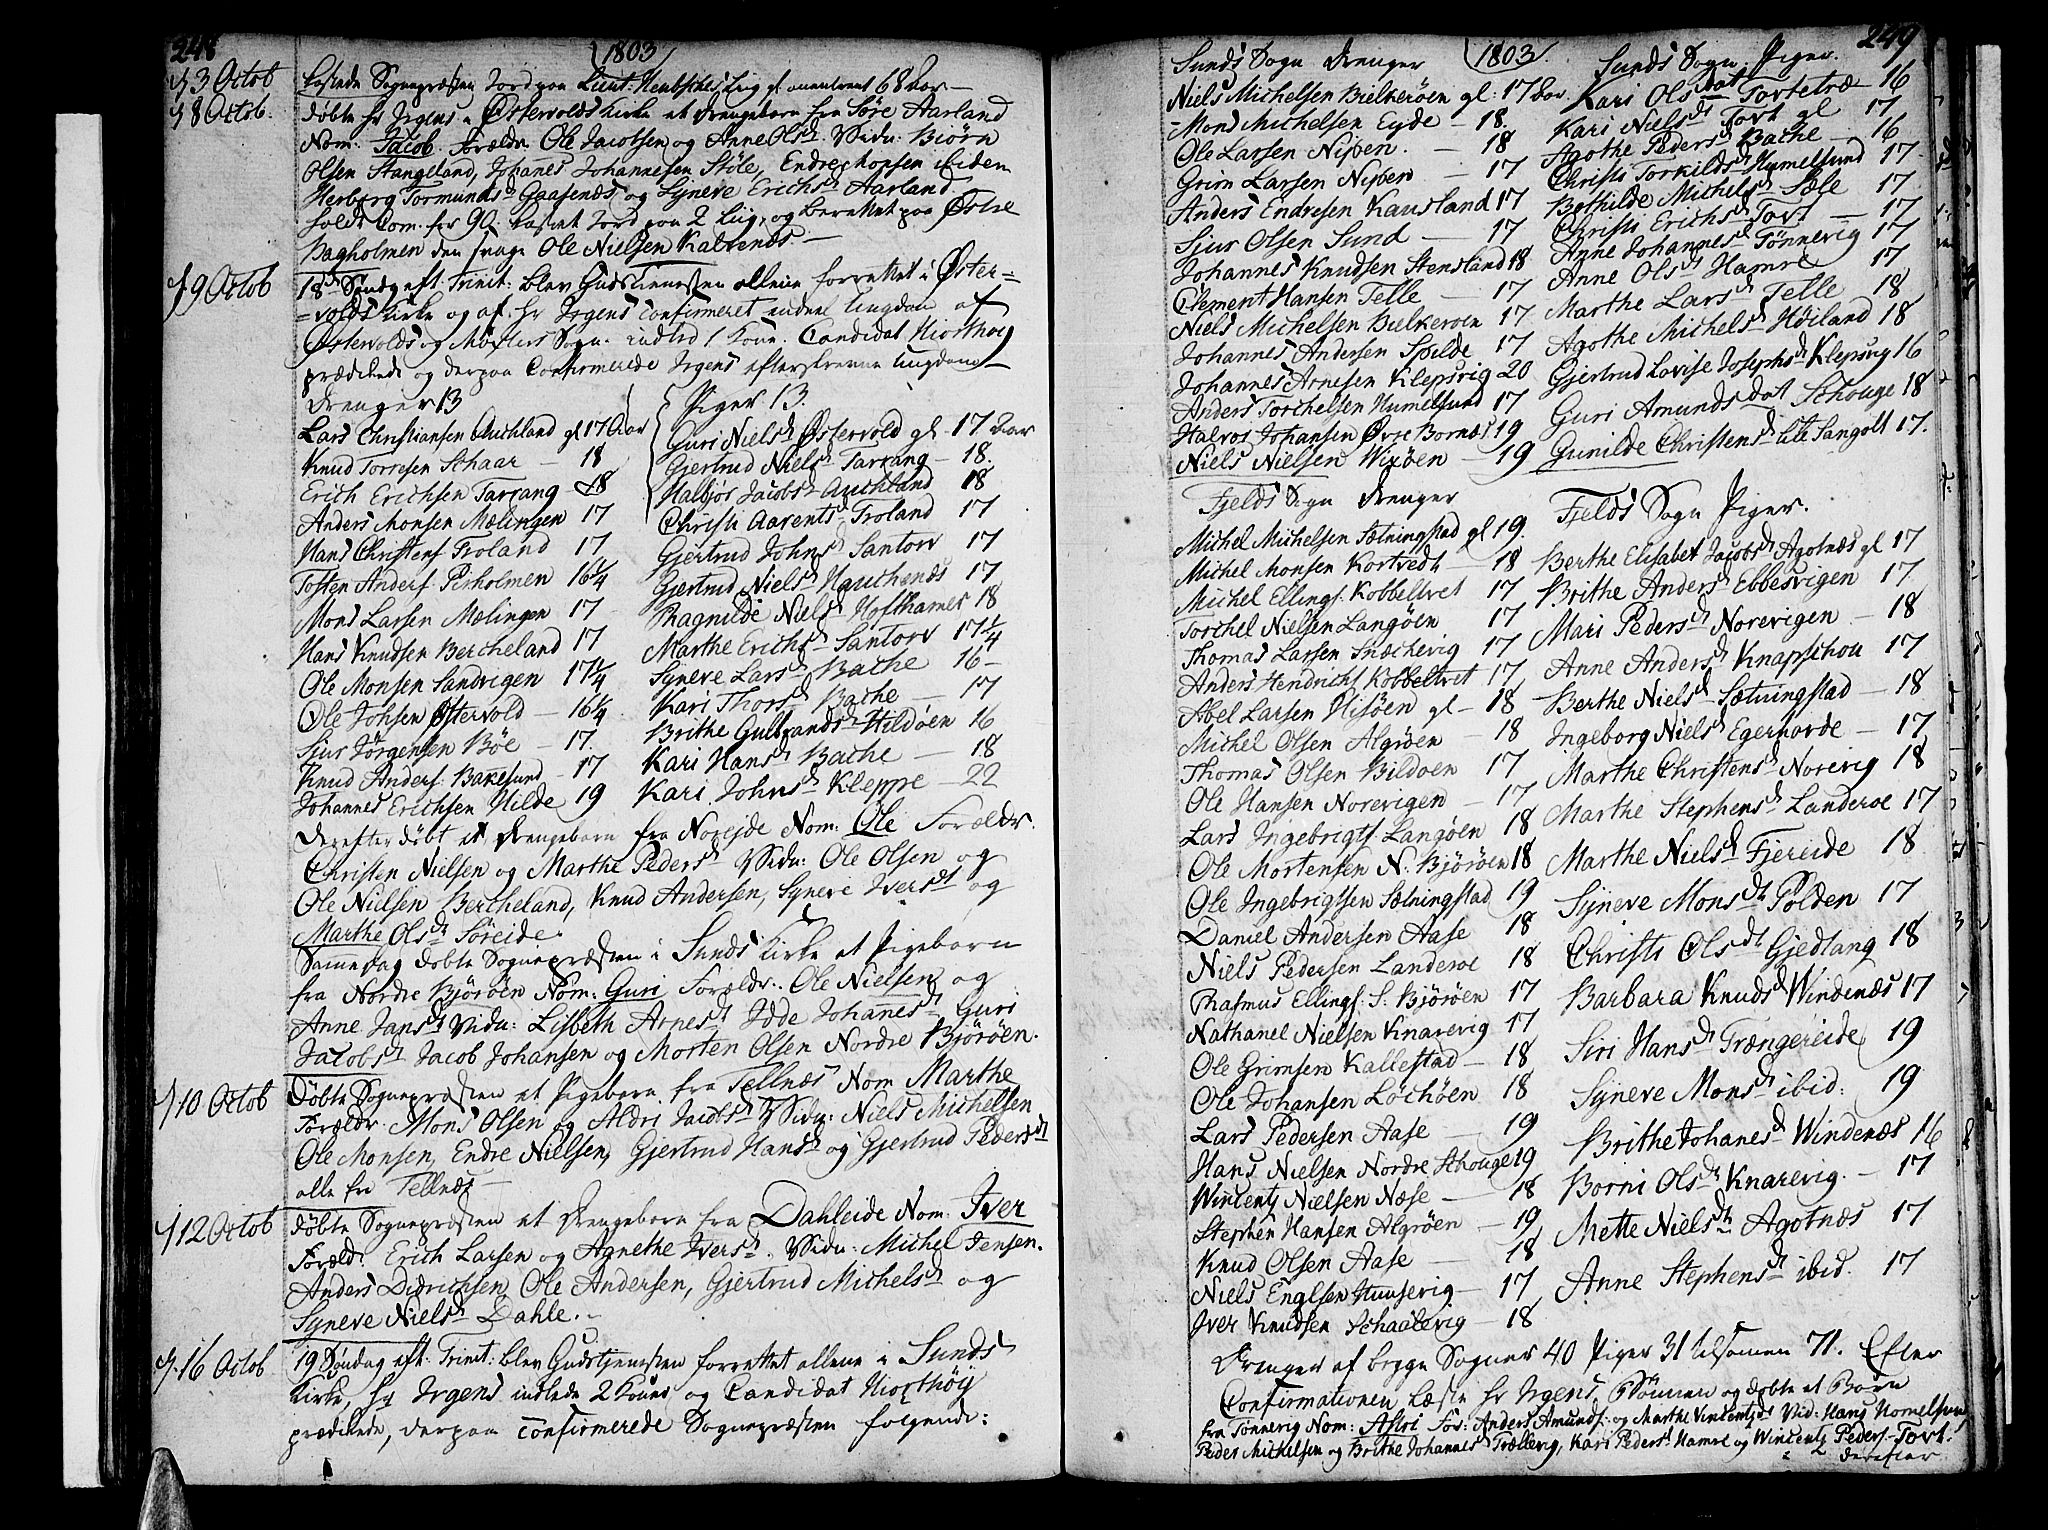 248
1803
d 3 Octob
kastede Sognepræsten Jord paa Lieut: Lig gl. omentrent 68 Aar
d 8 Octob.
døbte hr Irgens i Østervolds Kirke et Drengebarn fra Søre Aarland
Nom: Jacob. Forældr. Ole Jacobsen og Anne Olsdt. Vidn: Biørn
Olsen Stangeland, Johanes Johannesen Støle, Endre ibidem
Herborg Tormundsdt Gaasenæs og Syneve Erichsdt Aarland.
holdt Com. for 90. kastet Jord paa 2 Liig, og berettet paa Østre
Bagholmen den svage Ole Nielsen Kalvenæs
d 9 Octob
18de Søndag eft: Trinit: blev Gudstienesten allene forrettet i Øster=
=volds Kirke og af hr Irgens Confirmeret endeel Ungdom af
Østervolds og Møxters Sogn. indled 1 Kone. Candidat Hiorthøy
prædikede og derpaa Confirmerede Irgens efterskrevne Ungdom
Drenger 13
Lars Christiansen Auchland gl. 17 Aar
Knud Torresen Schaar — 18
Erich Erichsen Tarrang — 18
Anders Monsen Mælingen 17
Hans Christens. Troland 17
Tosten Anders. Perholmen 16¼
Mons Larsen Mælingen 17
Hans Knudsen Bercheland 17
Ole Monsen Sandvigen 17¼
Ole Johsen Østervold — 16¼
Siur Jörgensen Böe — 17.
Knud Anders. Bakesund — 17
Johannes Erichsen Hilde 19
Piger 13.
Guri Nielsdt Østervold gl. 17 Aar
Gjertrud Nielsdt Tarrang — 18.
Halbjör Jacobsdt Auchland 18
Christi Aarentsdt Troland 17
Gjertrud Johnsdt Santorv 17
Gjertrud Nielsdt Hauchanæs 17
Ragnilde Nielsdt Hofthamer 18
Marthe Erichsdt Santorv 17¼
Syneve Larsdt Bache 16
Kari Thorsdt Bache — 17
Brithe Gulbrandsdt Hildöen 16
Kari Hansdt Bache — 18
Kari Johnsdt Kleppe — 22
Derefter døbt et Drengebarn fra Noreide Nom: Ole Forældr.
Christen Nielsen og Marthe Pedersdt Vidn: Ole Olsen og
Ole Nielsen Bercheland, Knud Andersen, Syneve Iversdt og
Marthe Olsdt Söreide.
Samme Dag døbte Sognepræsten i Sunds Kirke et Pigebarn
fra Nordre Björöen Nom: Guri Forældr: Ole Nielsen og
Anne Jansdt Vidn: Lisbeth Arnesdt Johanesdt Guri
Jacobsdt Jacob Johansen og Morten Olsen Nordre Björöen.
d 10 Octob
Døbte Sognepræsten et Pigebarn fra Tellnæs Nom Marthe
Forældr. Mons Olsen og Aldri Jacobsdt Vidn: Niels Michelsen
Ole Monsen, Endre Nielsen, Gjertrud Hansdt og Gjertrud Pedersdt
alle fra Tellnæs
d 12 Octob
Døbte Sognepræsten et Drengebarn fra Dahleide Nom: Iver
Foræld: Erich Larsen og Agnethe Iversdt. Vidn: Michel Jensen.
Anders Didrichsen, Ole Andersen, Gjertrud Michelsdt og
Syneve Nielsdt Dahle.
d. 16 Octob
19 Söndag eft: Trinit: blev Gudstjenesten forrettet allene i Sunds
Kirke, hr Irgens indlede 2 Koner og Candidat Hiorthöy
prædikede, derpaa Confirmerede Sognepræsten følgende:
249
1803.
Sunds Sogn Drenger
Niels Michelsen Bielkeröen gl: 17 Aar.
Mons Michelsen Eyde — 18.
Ole Larsen Nipen. — 18
Grim Larsen Nipen — 17
Anders Endresen Kausland 17
Siur Olsen Sund — 17
Johannes Knudsen Stensland 18
Clement Hansen Telle — 17
Niels Michelsen Bielkeröen 17
Johannes Andersen Spilde 17
Johannes Arnesen Klepsvig 20
Anders Torchelsen Humelsund 17
Halvor Johansen Øvre Bornæs 19
Niels Nielsen Wixöen — 19
Sunds Sogn. Piger.
Kari Olsdat Tortetræ 16
Kari Nielsdt Tort gl 17
Agothe Pedersdt Bache — 16
Christi Torkildsdt Humelsund 17.
Bothilde Michelsdt Sæle 17
Christi Erichsdt Tort — 17
Anne Johannesdt Tönnevig 17
Anne Olsdt Hamre 17
Marthe Larsdt Telle 18
Agothe Michelsdt Höiland 18
Gjertrud Lovise Josephsdt Klepsvig 16
Guri Amundsdat Schouge 18
Gunilde Christensdt lite Sangolt 17.
Fjelds Sogn Drenger
Michel Michelsen Sætningstad gl 19.
Michel Monsen Kortvedt — 18
Michel Ellings. Kobbeltvet 17
Torchel Nielsen Langöen 17
Thomas Larsen Snæchevig 17
Anders Hendrichs. Kobbeltvet 17
Abel Larsen Misöen gl — 18
Michel Olsen Algröen — 18
Thomas Olsen Bildöen 17
Ole Hansen Norevigen — 17
Lars Ingebrigts. Langöen 18
Ole Mortensen N. Björöen 18
Ole Ingebrigtsen Sætningstad 19
Daniel Andersen Aase 18
Niels Pedersen Landeröe 18
Rasmus Ellings. S. Björöen 17
Nathanel Nielsen Knarevig 17
Ole Grimsen Kallestad — 18
Ole Johansen Löchöen 18
Lars Pedersen Aase — 19
Hans Nielsen Nordre Schouge 19
Wincentz Nielsen Næse — 18
Stephen Hansen Algröen — 19
Knud Olsen Aase — 18
Niels Englsen — 17
Iver Knudsen Schaalevig — 18
Fjelds Sogn Piger.
Berthe Elisabet Jacobsdt Agotnæs gl 17
Brithe Andersdt Ebbesvigen 17
Mari Pedersdt Norevigen — 18
Anne Andersdt Knapschou 17
Berthe Nielsdt Sætningstad — 18
Ingeborg Nielsdt Egerhovde — 17
Marthe Christensdt Norevig 18
Marthe Stephensdt Landeroe 17
Marthe Nielsdt Fjereide 18
Syneve Monsdt Polden 17
Christi Olsdt Gjedtang 18
Barbara Knudsdt Windenæs 17
Siri Hansdt Trængereide 19
Syneve Monsdt ibid: 19
Brithe Johanesdt Windenæs 16
Borni Olsdt Knarevig. — 17
Mette Nielsdt Agotnæs 17
Anne Stephensdt ibid. 17
Drenger af begge Sogner 40 Piger 31 tilsamen 71. Efter
Confirmationen læste hr Irgens Bönnen og døbte et Barn
fra Tönnevig Nom: For: Anders Amunds: og Marthe Vincentzdt Vid: Hans
Peder Michelsen og Brithe Johannesdt Trællevig, Kari Pedersdt Hamre og Wincentz Peders. Tort.
derefter